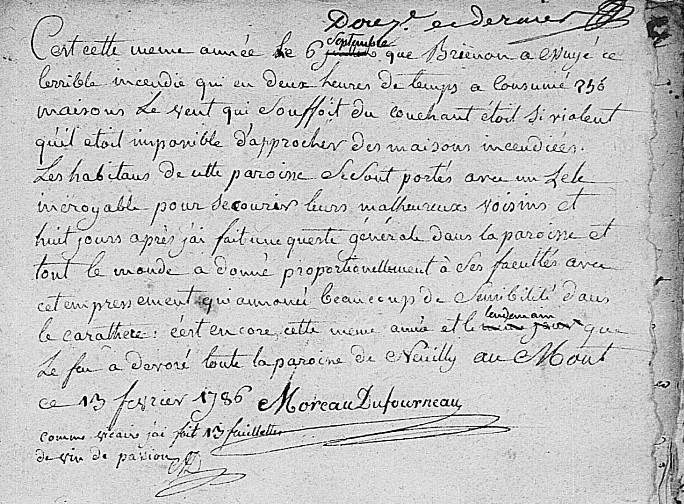 Douze et dernier
C'est cette meme année le 6 septembre que Brienon a essuyé ce
terrible incendie qui en deux heures de temps a consumé 256
maisons Le vent qui souffloit du couchant étoit si violent
qu'il etoit impossible d'approcher des maisons incendiées.
Les habitans de cette paroisse se sont portés avec un zele
incroyable pour secourir leurs malheureux voisins et
huit jours après j'ai fait une queste générale dans la paroisse et
tout le monde a donné proportionellement à ses facultés avec
cet empressement qui annonce beaucoup de sensibilité dans
le carathere : c'est encore cette meme année et le lendemain que
Le feu a devoré toute la paroisse de Neuilly au Mont
ce 13 fevrier 1786 Moreau Dufourneau
comme vicaire j'ai fait 13 feuillettes
de vin de passion